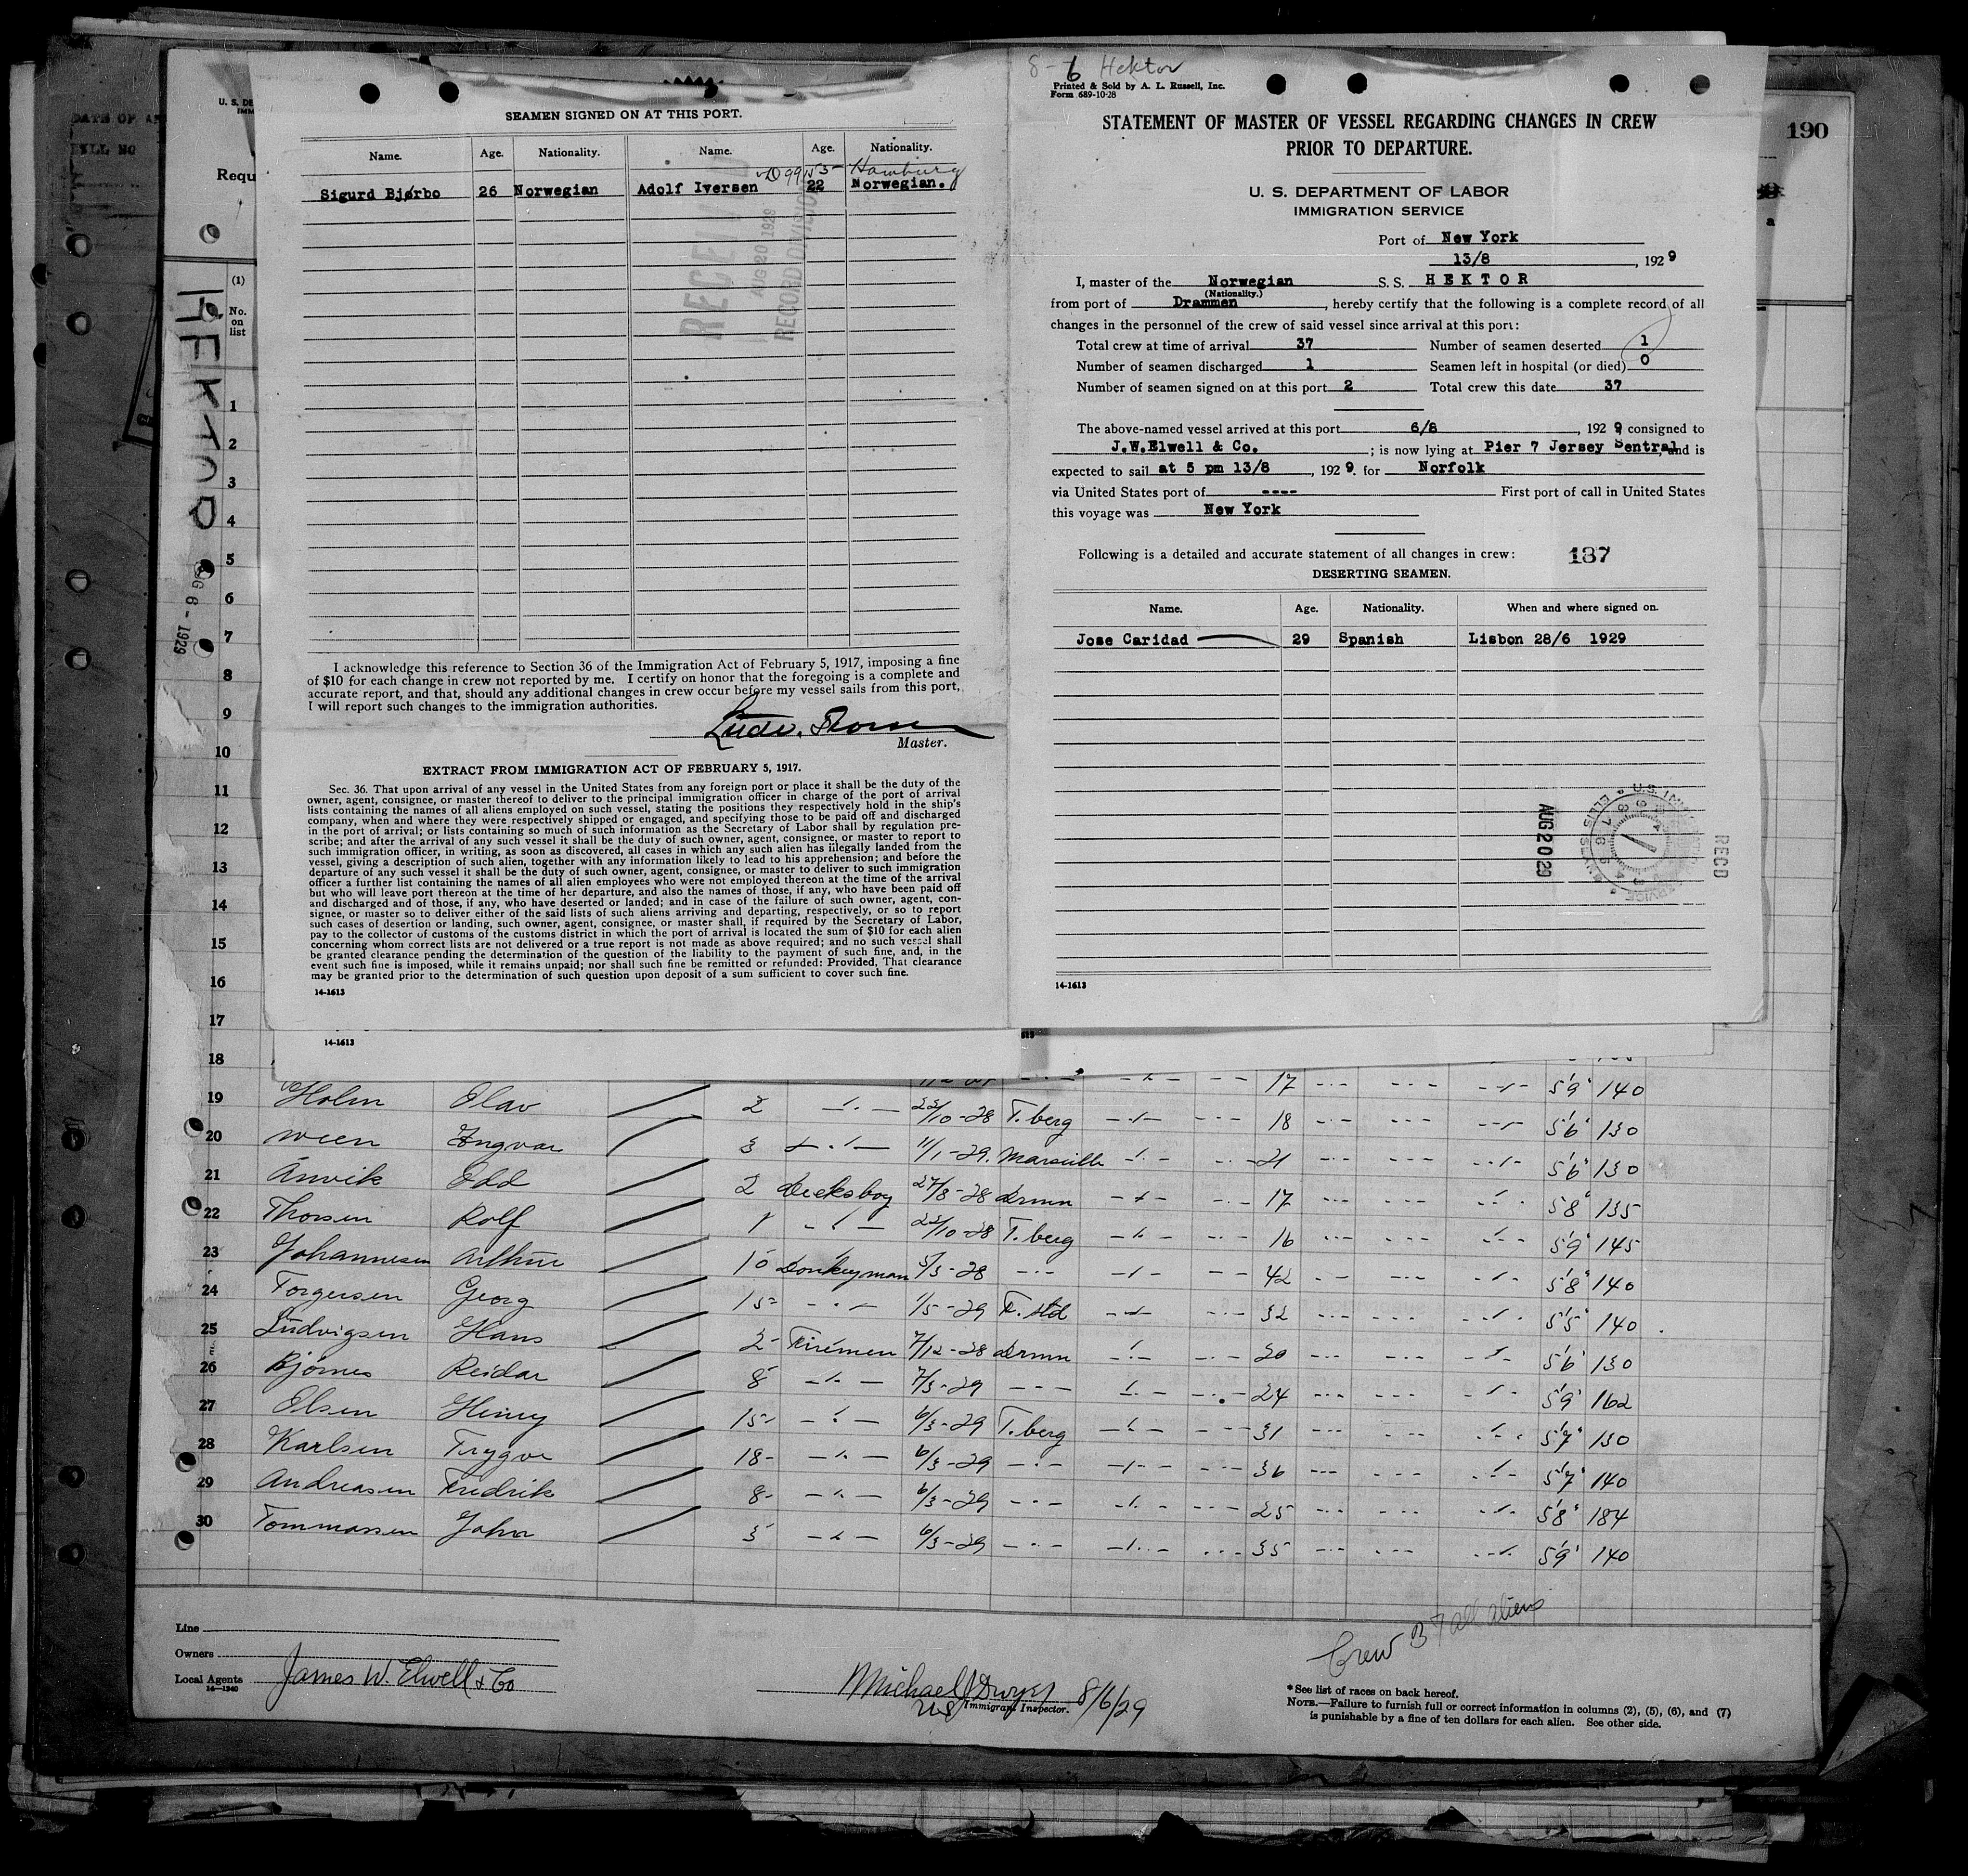 190
8-6 Hektor
SEAMEN SIGNED ON AT THIS PORT.
Name. Age. Nationality. Name. Age. Nationality.
Hamburg
Sigurd Bjørbo 26 Norwegian Adolf Iversen 22 Norwegian.
RECEIVED
AUG 20 1929
RECORD DIVISION
I acknowledge this reference to Section 36 of the Immigration Act of February 5, 1917, imposing a fine
of $10 for each change in crew not reported by me. I certify on honor that the foregoing is a complete and
accurate report, and that, should any additional changes in crew occur before my vessel sails from this port,
I will report such changes to the immigration authorities.
Master.
EXTRACT FROM IMMIGRATION ACT OF FEBRUARY 5, 1917.
Sec. 36. That upon arrival of any vessel in the United States from any foreign port or place it shall be the duty of the
owner, agent, consignee, or master thereof to deliver to the principal immigration officer in charge of the port of arrival
lists containing the names of all aliens employed on such vessel, stating the positions they respectively hold in the ship's
company, when and where they were respectively shipped or engaged, and specifying those to be paid off and discharged
in the port of arrival; or lists containing so much of such information as the Secretary of Labor shall by regulation pre-
scribe; and after the arrival of any such vessel it shall be the duty of such owner, agent, consignee, or master to report to
such immigration officer, in writing, as soon as discovered, all cases in which any such alien has illegally landed from the
vessel, giving a description of such alien, together with any information likely to lead to his apprehension; and before the
departure of any such vessel it shall be the duty of such owner, agent, consignee, or master to deliver to such immigration
officer a further list containing the names of all alien employees who were not employed thereon at the time of the arrival
but who will leave port thereon at the time of her departure, and also the names of those, if any, who have been paid off
and discharged and of those, if any, who have deserted or landed; and in case of the failure of such owner, agent, con-
signee, or master so to deliver either of the said lists of such aliens arriving and departing, respectively, or so to report
such cases of desertion or landing, such owner, agent, consignee, or master shall, if required by the Secretary of Labor,
pay to the collector of customs of the customs district in which the port of arrival is located the sum of $10 for each alien
concerning whom correct lists are not delivered or a true report is not made as above required; and no such vessel shall
be granted clearance pending the determination of the question of the liability to the payment of such fine, and, in the
event such fine is imposed, while it remains unpaid; nor shall such fine be remitted or refunded: Provided, That clearance
may be granted prior to the determination of such question upon deposit of a sum sufficient to cover such fine.
14-1613
14-1613
Printed & Sold by A. L. Russell, Inc.
Form 689-10-28
STATEMENT OF MASTER OF VESSEL REGARDING CHANGES IN CREW
PRIOR TO DEPARTURE.
U. S. DEPARTMENT OF LABOR
IMMIGRATION SERVICE
Port of New York
13/8, 1929
I, master of the Norwegian S. S. HEKTOR
(Nationality.)
from port of Drammen, hereby certify that the following is a complete record of all
changes in the personnel of the crew of said vessel since arrival at this port:
Total crew at time of arrival 37 Number of seamen deserted 1
Number of seamen discharged 1 Seamen left in hospital (or died) 0
Number of seamen signed on at this port 2 Total crew this date 37
The above-named vessel arrived at this port 6/8, 1929 consigned to
J.W.Elwell & Co.; is now lying at Pier 7 Jersey Sentral, and is
expected to sail at 5 pm 13/8, 1929. for Norfolk
via United States port of ---- First port of call in United States
this voyage was New York
Following is a detailed and accurate statement of all changes in crew: 187
DESERTING SEAMEN.
Name. Age. Nationality. When and where signed on.
Jose Caridad 29 Spanish Lisbon 28/6 1929
AUG 20 29
RECD
14-1613
Requ
HEKTOR
AUG 6 - 1929
(1)
No.
on
list
1
2
3
4
5
6
7
8
9
10
11
12
13
14
15
16
17
18
17 5'9" 140
19 Holm Olav 2 22/10-28 T.berg 18 5'6" 130
20 Ween Ingvar 3 11/1-29. Marseille 21 5'6" 130
21 Anvik Odd 2 Decksboy 27/8-28 drmn 17 5'8" 135
22 Thorsen Rolf 1 22/10-28 T.berg 16 5'9" 145
23 Johannesen Arthur 10 Donkeyman 5/3-28 42 5'8" 140
24 Torgersen Georg 15 1/5-29 F.std 32 5'5" 140
25 Ludvigsen Hans 2 Firemen 7/12-28 drmn 20 5'6" 130
26 Bjørnes Reidar 8 7/3-29 24 5'9" 162
27 Olsen Henry 15 6/3-29 T.berg 31 5'7" 130
28 Karlsen Trygve 18 6/3-29 36 5'7" 140
29 Andreasen Fredrik 8 6/3-29 25 5'8" 184
30 Tommassen John 5 6/3-29 35 5'9" 140
Line
Owners
Local Agents James W. Elwell & Co
14-1240
Michael J Dwyer 8/6/29
Immigrant Inspector.
Crew 37 all aliens
*See list of races on back hereof.
NOTE.—Failure to furnish full or correct information in columns (2), (5), (6), and (7)
is punishable by a fine of ten dollars for each alien. See other side.